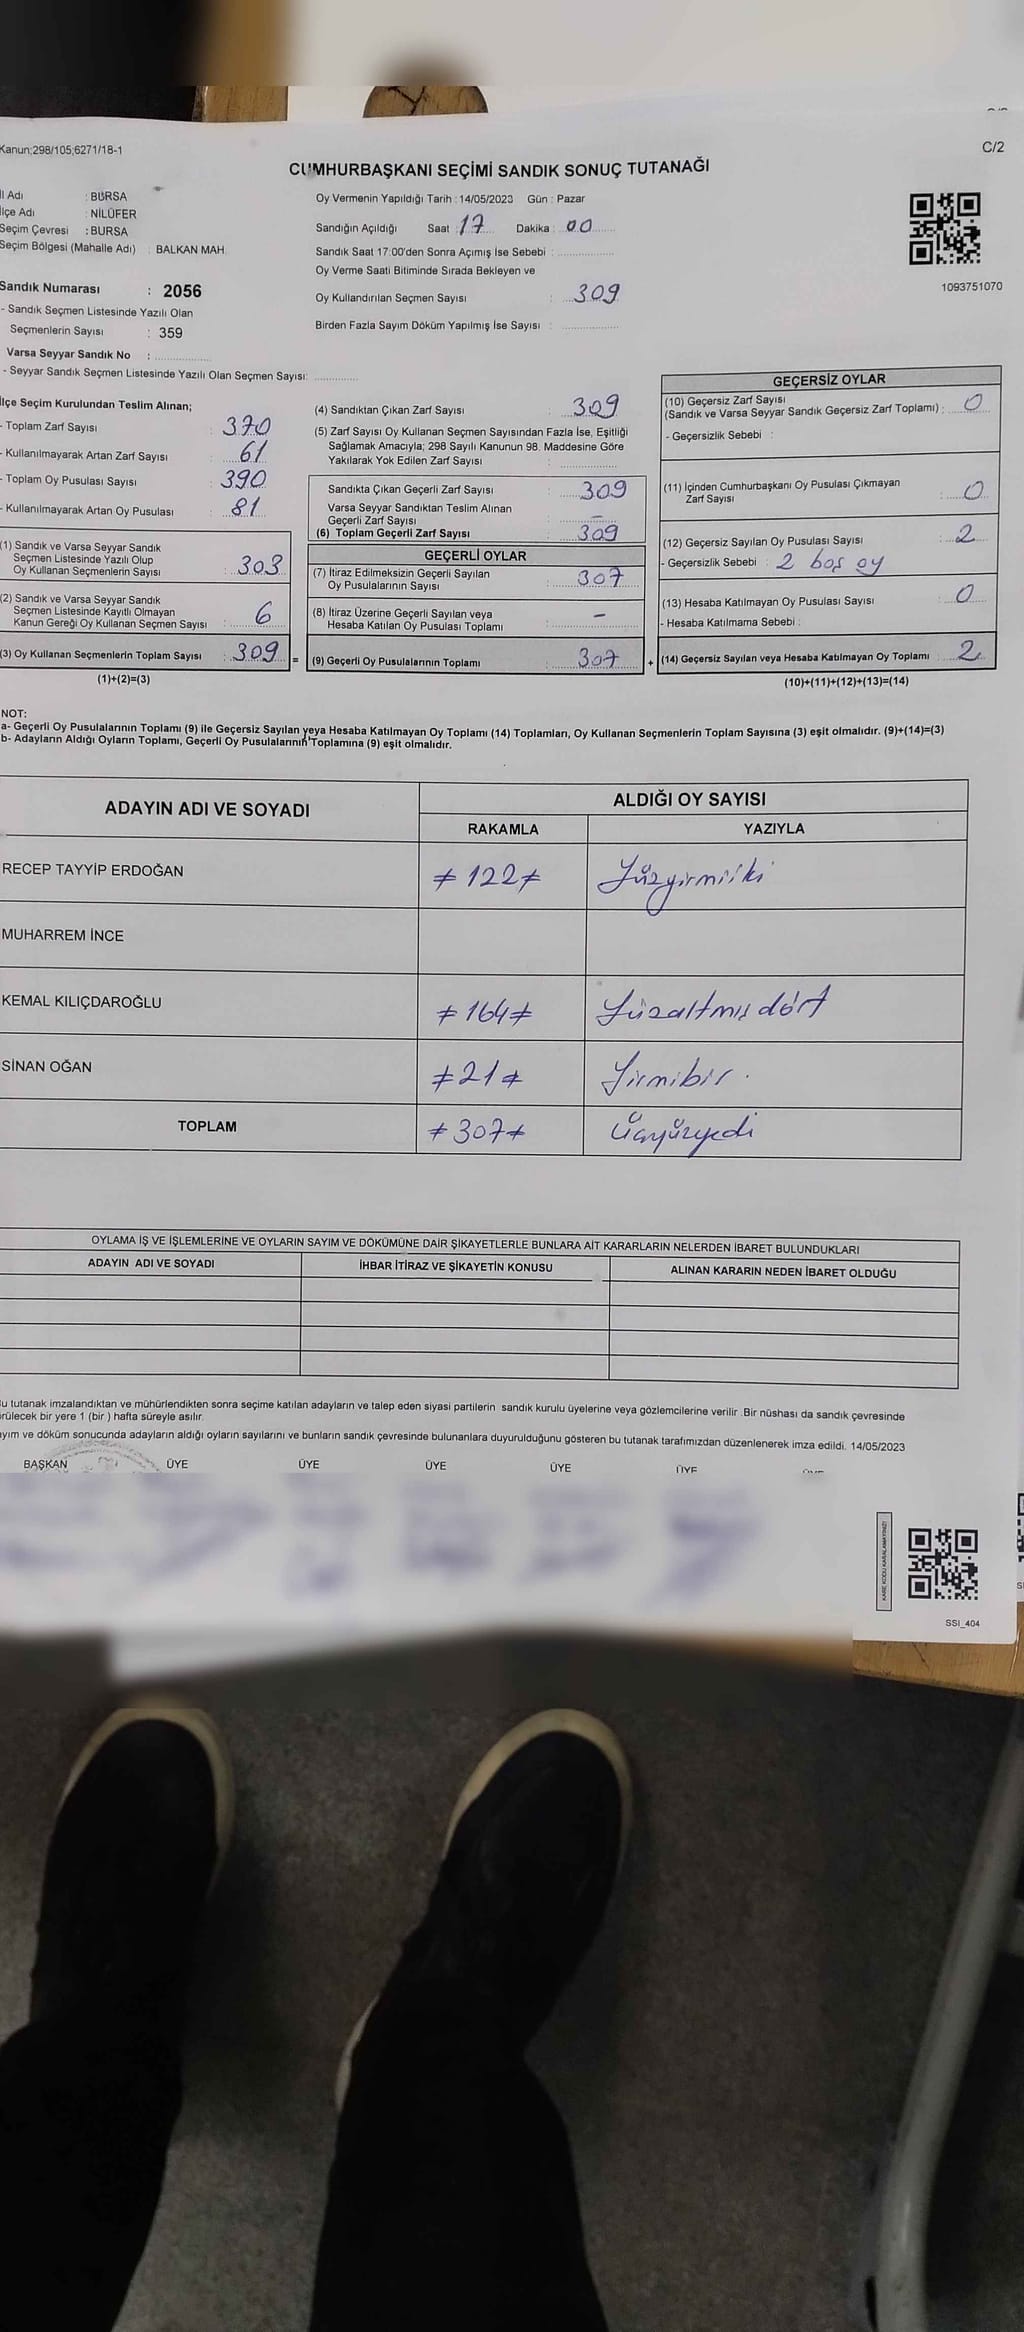 Kanun;298/105;6271/18-1
C/2
CUMHURBAŞKANI SEÇİMİ SANDIK SONUÇ TUTANAĞI
İl Adı : BURSA
İlçe Adı : NİLÜFER
Seçim Çevresi : BURSA
Seçim Bölgesi (Mahalle Adı) : BALKAN MAH.
Sandık Numarası : 2056
- Sandık Seçmen Listesinde Yazılı Olan
Seçmenlerin Sayısı : 359
Varsa Seyyar Sandık No :
- Seyyar Sandık Seçmen Listesinde Yazılı Olan Seçmen Sayısı:
Oy Vermenin Yapıldığı Tarih : 14/05/2023 Gün : Pazar
Sandığın Açıldığı Saat : 17 Dakika : 00
Sandık Saat 17:00'den Sonra Açımış İse Sebebi :
Oy Verme Saati Bitiminde Sırada Bekleyen ve
Oy Kullandırılan Seçmen Sayısı : 309
Birden Fazla Sayım Döküm Yapılmış İse Sayısı :
1093751070
İlçe Seçim Kurulundan Teslim Alınan;
- Toplam Zarf Sayısı : 370
- Kullanılmayarak Artan Zarf Sayısı : 61
- Toplam Oy Pusulası Sayısı : 390
- Kullanılmayarak Artan Oy Pusulası : 81
(1) Sandık ve Varsa Seyyar Sandık
Seçmen Listesinde Yazılı Olup
Oy Kullanan Seçmenlerin Sayısı : 303
(2) Sandık ve Varsa Seyyar Sandık
Seçmen Listesinde Kayıtlı Olmayan
Kanun Gereği Oy Kullanan Seçmen Sayısı : 6
(3) Oy Kullanan Seçmenlerin Toplam Sayısı : 309 =
(1)+(2)=(3)
(4) Sandıktan Çıkan Zarf Sayısı : 309
(5) Zarf Sayısı Oy Kullanan Seçmen Sayısından Fazla İse, Eşitliği
Sağlamak Amacıyla; 298 Sayılı Kanunun 98. Maddesine Göre
Yakılarak Yok Edilen Zarf Sayısı :
Sandıkta Çıkan Geçerli Zarf Sayısı : 309
Varsa Seyyar Sandıktan Teslim Alınan
Geçerli Zarf Sayısı : –
(6) Toplam Geçerli Zarf Sayısı : 309
GEÇERLİ OYLAR
(7) İtiraz Edilmeksizin Geçerli Sayılan
Oy Pusulalarının Sayısı : 307
(8) İtiraz Üzerine Geçerli Sayılan veya
Hesaba Katılan Oy Pusulası Toplamı : –
(9) Geçerli Oy Pusulalarının Toplamı : 307 +
GEÇERSİZ OYLAR
(10) Geçersiz Zarf Sayısı
(Sandık ve Varsa Seyyar Sandık Geçersiz Zarf Toplamı) : 0
- Geçersizlik Sebebi :
(11) İçinden Cumhurbaşkanı Oy Pusulası Çıkmayan
Zarf Sayısı : 0
(12) Geçersiz Sayılan Oy Pusulası Sayısı : 2
- Geçersizlik Sebebi : 2 boş oy
(13) Hesaba Katılmayan Oy Pusulası Sayısı : 0
- Hesaba Katılmama Sebebi :
(14) Geçersiz Sayılan veya Hesaba Katılmayan Oy Toplamı : 2
(10)+(11)+(12)+(13)=(14)
NOT:
a- Geçerli Oy Pusulalarının Toplamı (9) ile Geçersiz Sayılan veya Hesaba Katılmayan Oy Toplamı (14) Toplamları, Oy Kullanan Seçmenlerin Toplam Sayısına (3) eşit olmalıdır. (9)+(14)=(3)
b- Adayların Aldığı Oyların Toplamı, Geçerli Oy Pusulalarının Toplamına (9) eşit olmalıdır.
ADAYIN ADI VE SOYADI ALDIĞI OY SAYISI
RAKAMLA YAZIYLA
RECEP TAYYİP ERDOĞAN ≠122≠ Yüzyirmiiki
MUHARREM İNCE
KEMAL KILIÇDAROĞLU ≠164≠ Yüzaltmışdört
SİNAN OĞAN ≠21≠ Yirmibir.
TOPLAM ≠307≠ Üçyüzyedi
OYLAMA İŞ VE İŞLEMLERİNE VE OYLARIN SAYIM VE DÖKÜMÜNE DAİR ŞİKAYETLERLE BUNLARA AİT KARARLARIN NELERDEN İBARET BULUNDUKLARI
ADAYIN ADI VE SOYADI İHBAR İTİRAZ VE ŞİKAYETİN KONUSU ALINAN KARARIN NEDEN İBARET OLDUĞU
Bu tutanak imzalandıktan ve mühürlendikten sonra seçime katılan adayların ve talep eden siyasi partilerin sandık kurulu üyelerine veya gözlemcilerine verilir .Bir nüshası da sandık çevresinde
görülecek bir yere 1 (bir ) hafta süreyle asılır.
Sayım ve döküm sonucunda adayların aldığı oyların sayılarını ve bunların sandık çevresinde bulunanlara duyurulduğunu gösteren bu tutanak tarafımızdan düzenlenerek imza edildi. 14/05/2023
BAŞKAN ÜYE ÜYE ÜYE ÜYE ÜYE
KARE KODU KARALAMAYINIZ!
SSI_404